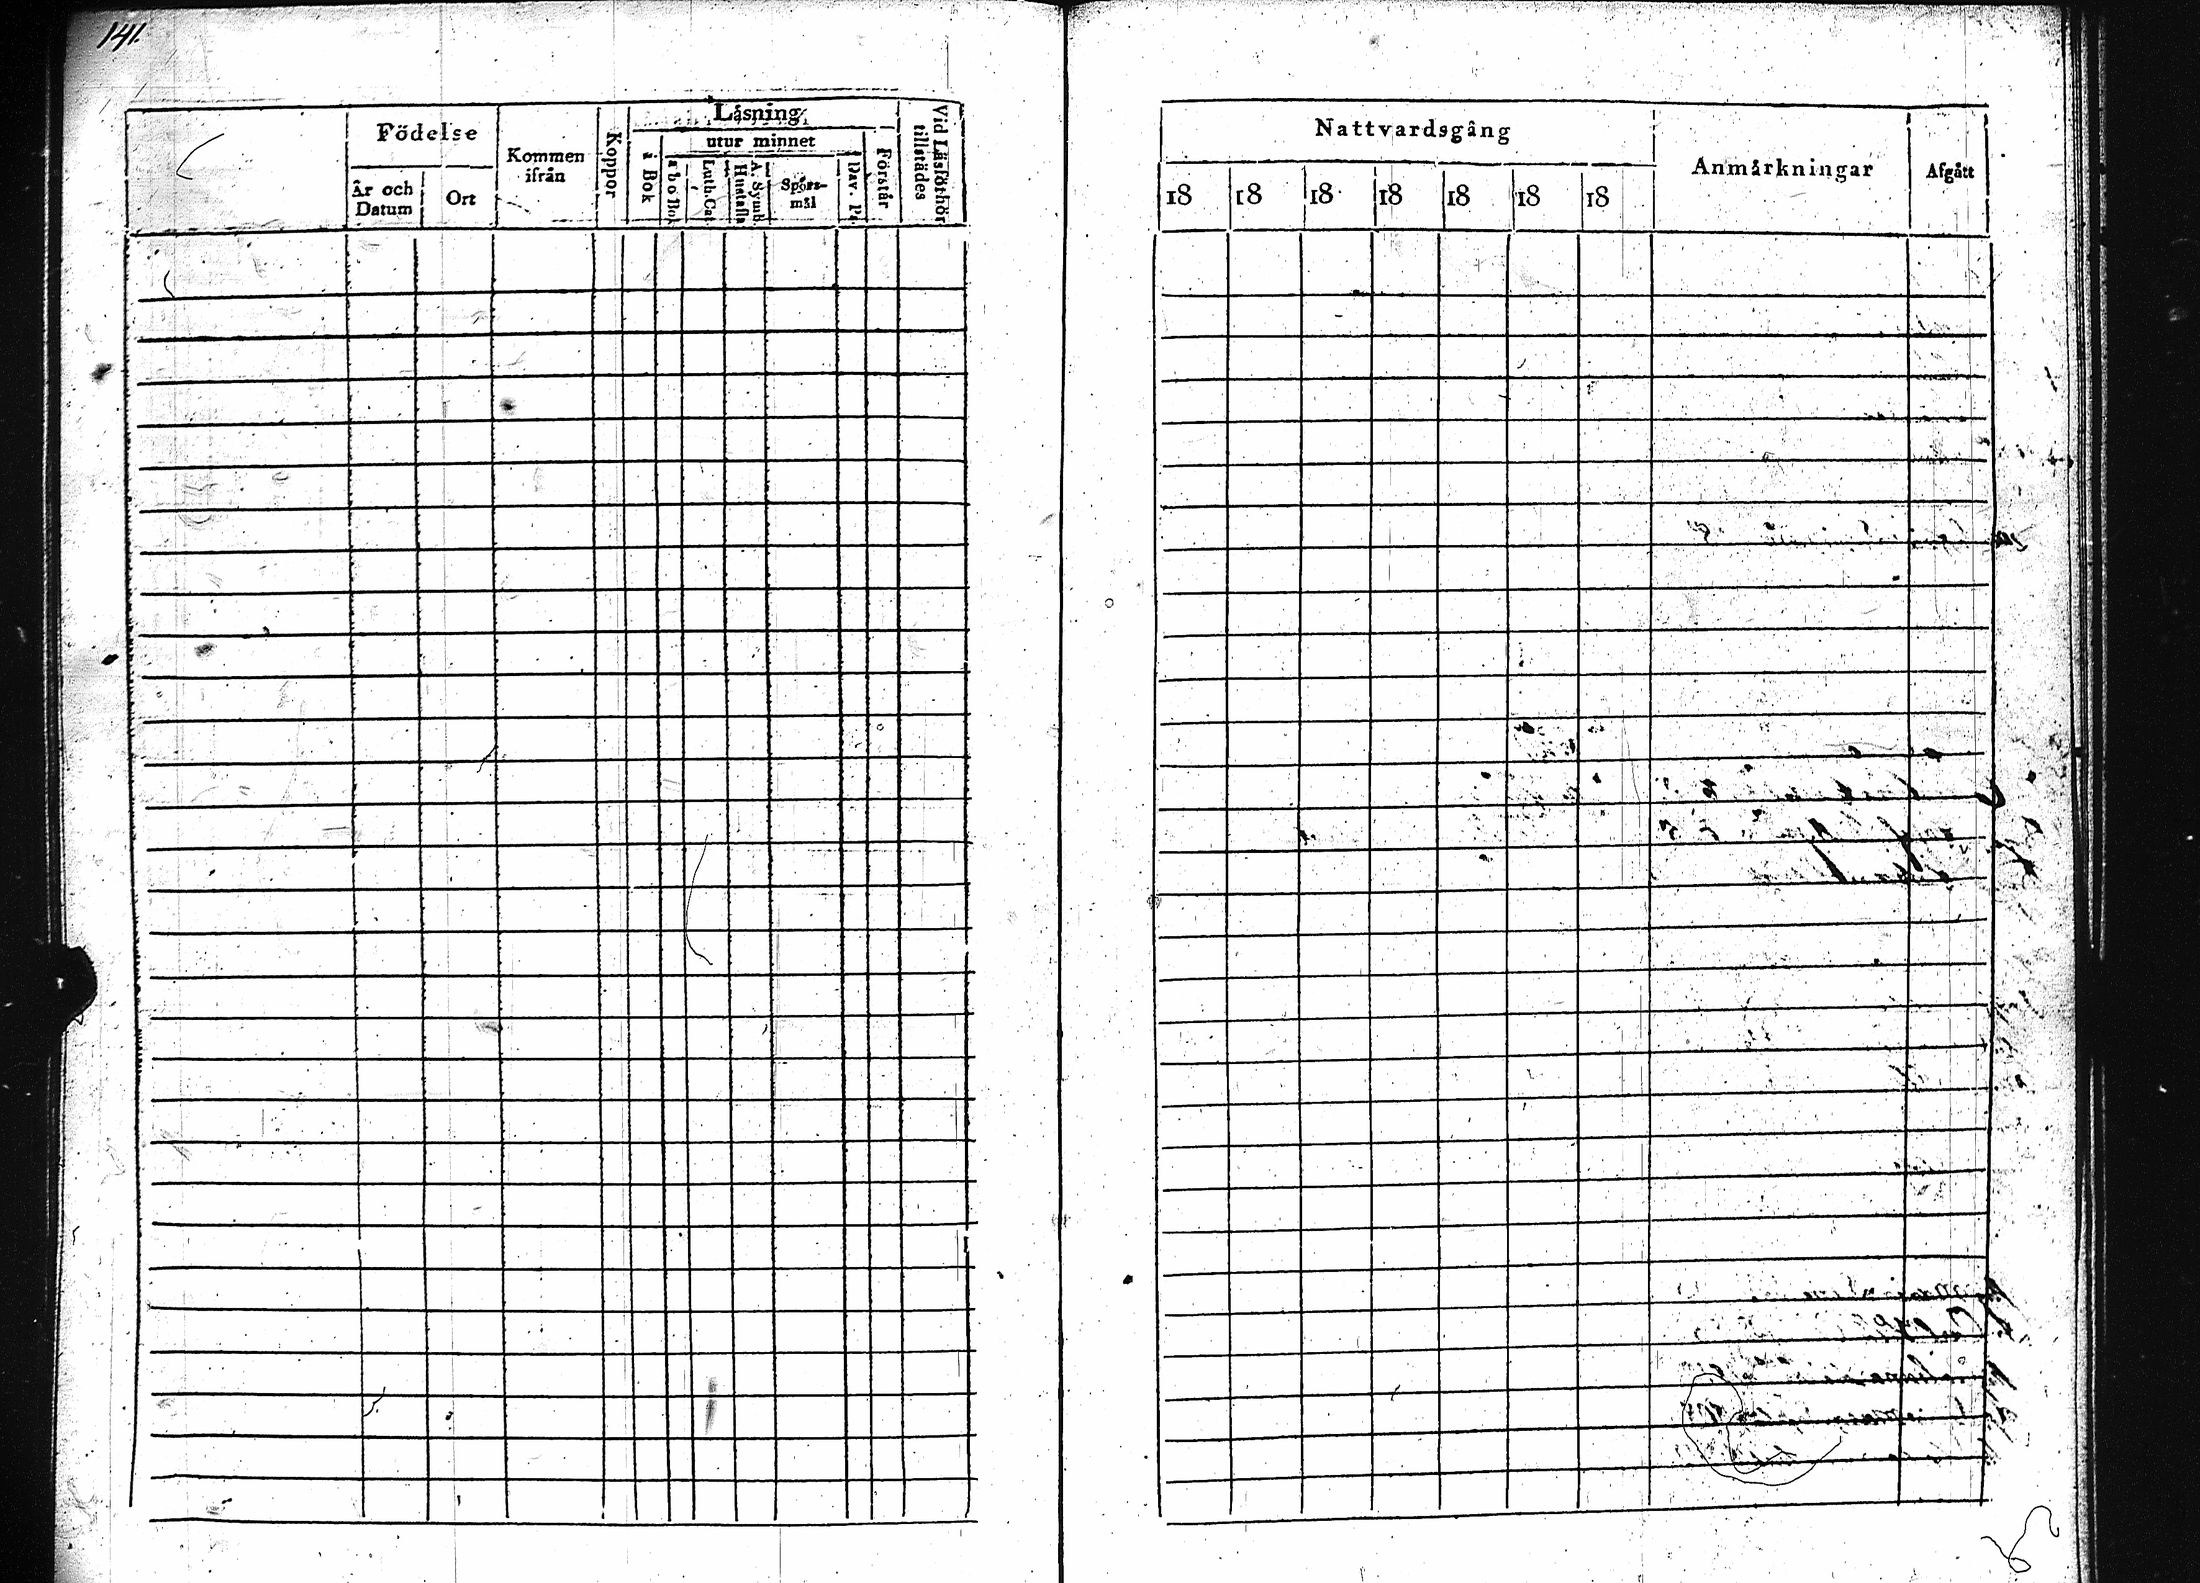 141.
Födelse
År och Datum
Ort
Kommen ifrån
Koppor
Läsning
i Bok
utur minnet
a b c Bok
Luth. Cat.
A. Symb. Hustafla
Spörs-mål
Dav. Ps.
Förstår
Vid Läsförhör tillstädes
Nattvardsgång
18 18 18 18 18 18 18
Anmärkningar
Afgått